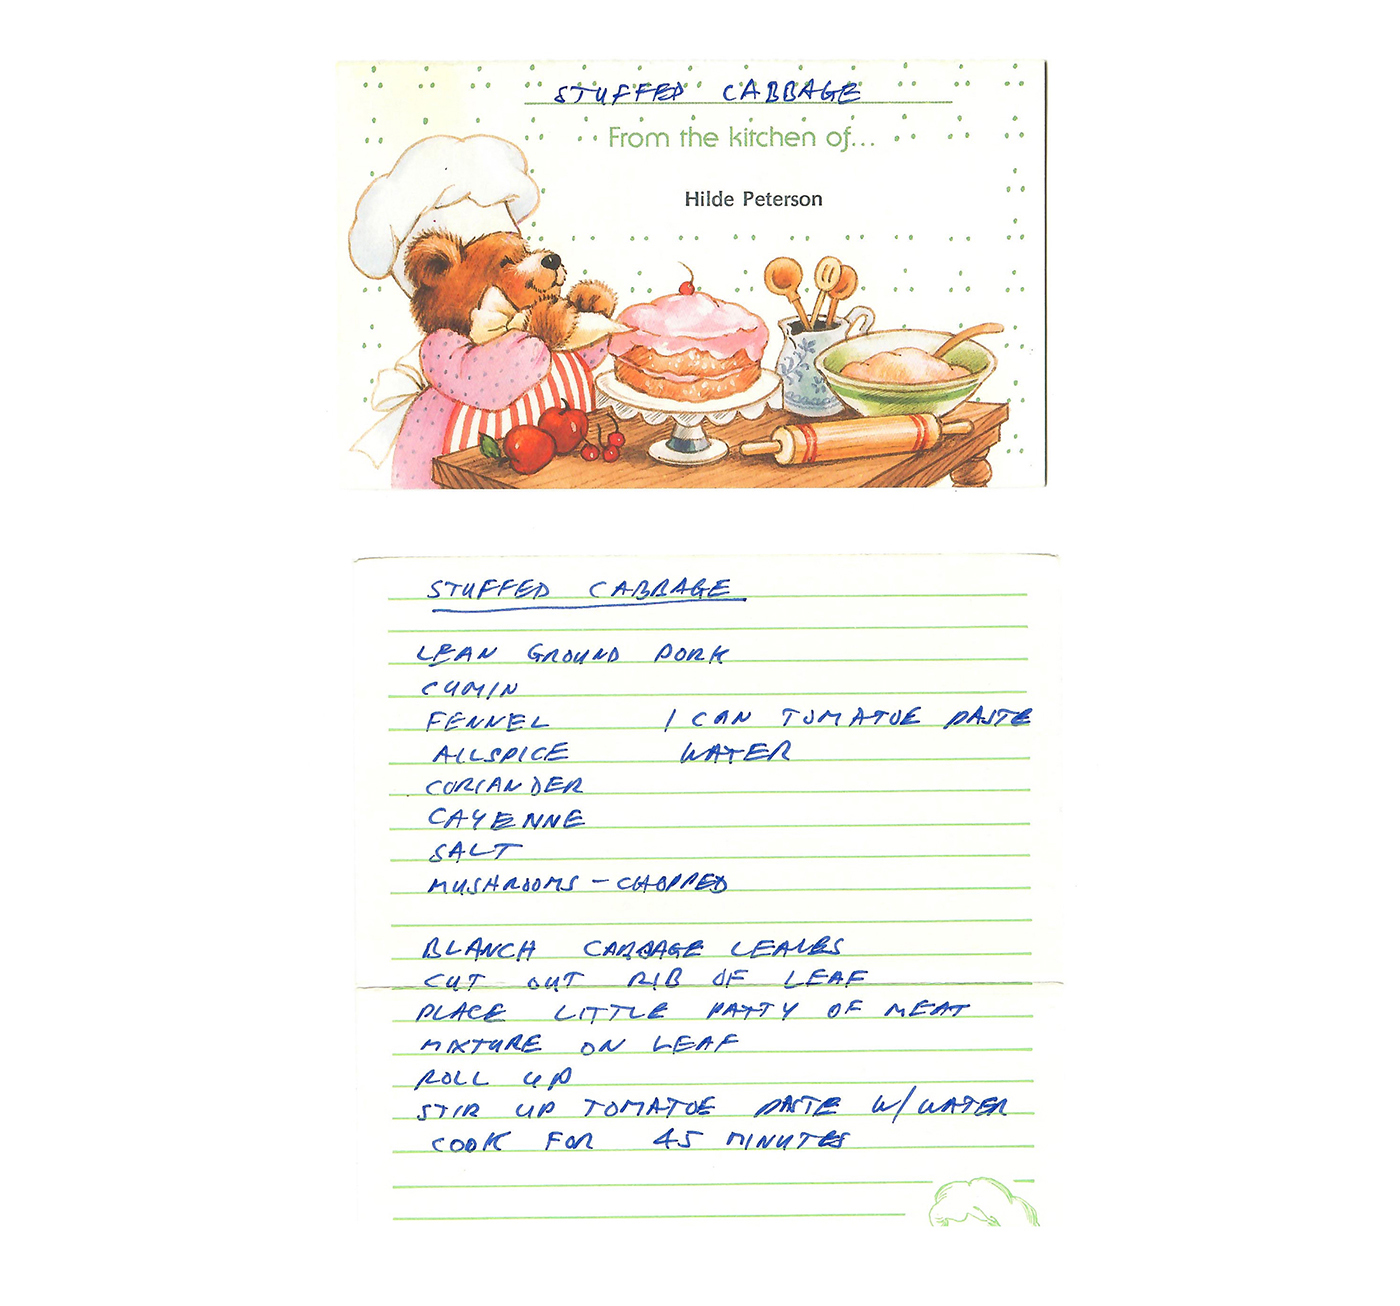 STUFFED CABBAGE
From the kitchen of...
Hilde Peterson
STUFFED CABBAGE
LEAN GROUND PORK
CUMIN
FENNEL 1 CAN TOMATOE PASTE
ALLSPICE WATER
CORIANDER
CAYENNE
SALT
MUSHROOMS - CHOPPED
BLANCH CABBAGE LEAVES
CUT OUT RIB OF LEAF
PLACE LITTLE PATTY OF MEAT
MIXTURE ON LEAF
ROLL UP
STIR UP TOMATOE PASTE W/ WATER
COOK FOR 45 MINUTES